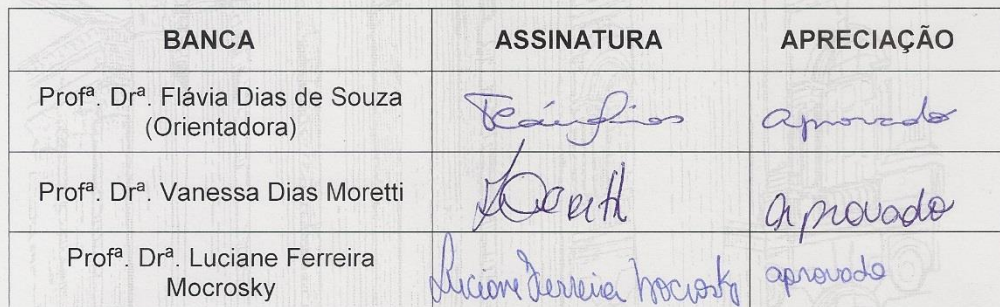 BANCA ASSINATURA APRECIAÇÃO
Profª. Drª. Flávia Dias de Souza
(Orientadora)
aprovado
Profª. Drª. Vanessa Dias Moretti
aprovado
Profª. Drª. Luciane Ferreira
Mocrosky
Luciane Ferreira Mocrosky aprovado